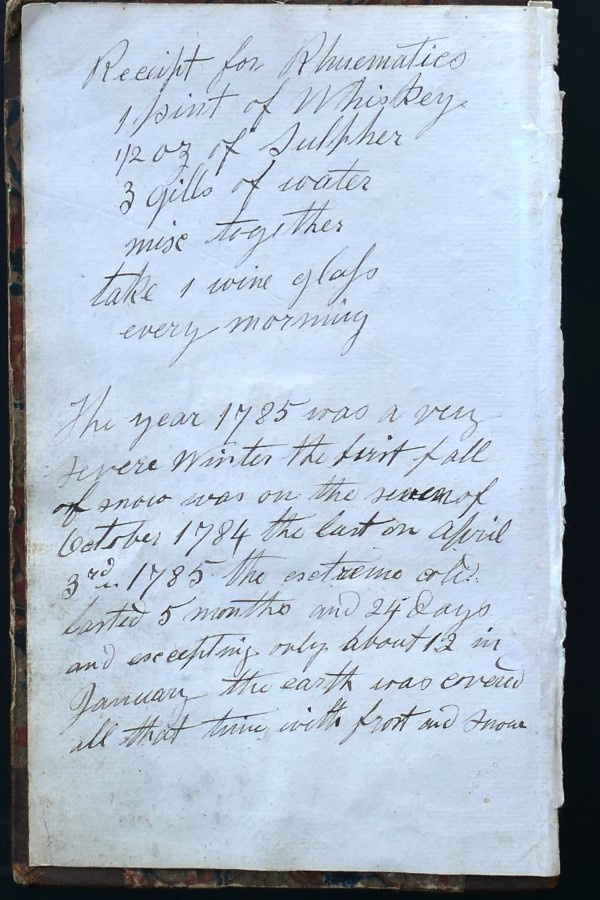 Receipt for Rhuematics
1 pint of Whiskey
1/2 oz of Sulpher
3 gills of water
mix together
take 1 wine glass
every morning
The year 1785 was a very
severe Winter the first fall
of snow was on the seven of
October 1784 the last on April
3rd 1785 the extreme cold
lasted 5 months and 24 Days
and excepting only about 12 in
January the earth was covered
all that time with frost and snow